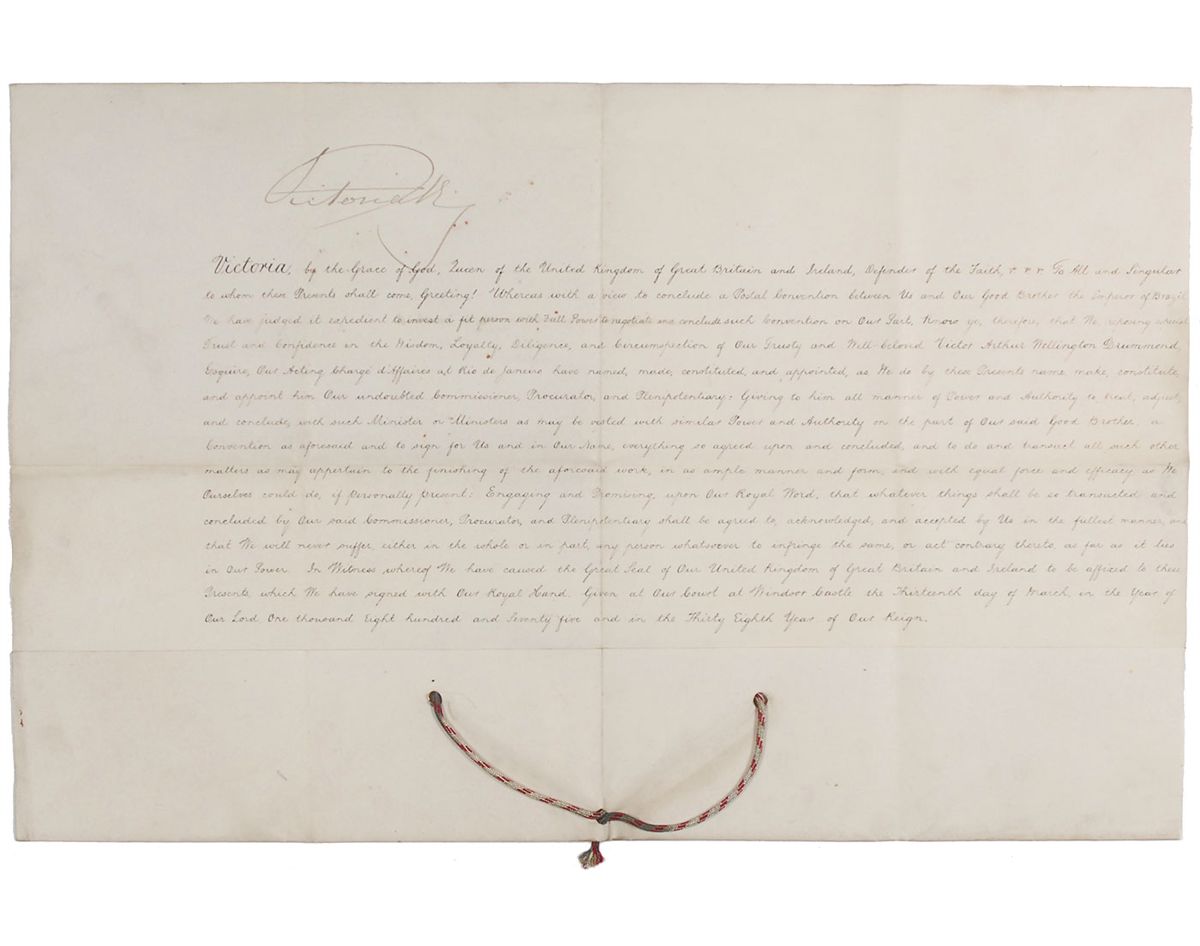 Victoria R
Victoria, by the Grace of God, Queen of the United Kingdom of Great Britain and Ireland, Defender of the Faith, &c &c &c To All and Singular
to whom these Presents shall come, Greeting! Whereas with a view to conclude a Postal Convention between Us and Our Good Brother the Emperor of Brazil
We have judged it expedient to invest a fit person with Full Power to negotiate and conclude such Convention on Our Part, Know ye, therefore, that We, reposing especial
Trust and Confidence in the Wisdom, Loyalty, Diligence, and Circumspection of Our Trusty and Well-beloved Victor Arthur Wellington Drummond,
Esquire, Our Acting Chargé d'Affaires at Rio de Janeiro have named, made, constituted, and appointed, as We do by these Presents name, make, constitute,
and appoint him Our undoubted Commissioner, Procurator, and Plenipotentiary: Giving to him all manner of Power and Authority to treat, adjust,
and conclude, with such Minister or Ministers as may be vested with similar Power and Authority on the part of Our said Good Brother, a
Convention as aforesaid and to sign for Us and in Our Name, everything so agreed upon and concluded, and to do and transact all such other
matters as may appertain to the finishing of the aforesaid work, in as ample manner and form, and with equal force and efficacy as We
Ourselves could do, if Personally present: Engaging and Promising, upon Our Royal Word, that whatever things shall be so transacted and
concluded by Our said Commissioner, Procurator, and Plenipotentiary shall be agreed to, acknowledged, and accepted by Us in the fullest manner, and
that We will never suffer, either in the whole or in part, any person whatsoever to infringe the same, or act contrary thereto, as far as it lies
in Our Power. In Witness whereof We have caused the Great Seal of Our United Kingdom of Great Britain and Ireland to be affixed to these
Presents, which We have signed with Our Royal Hand. Given at Our Court at Windsor Castle the Thirteenth day of March, in the Year of
Our Lord One thousand Eight hundred and Seventy five and in the Thirty Eighth Year of Our Reign.